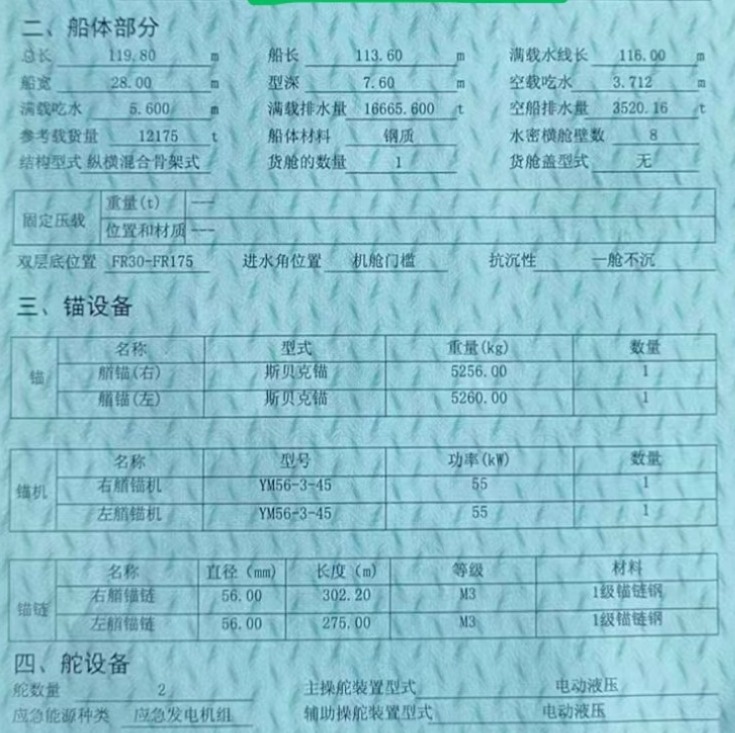 二、船体部分
总长 119.80 m 船长 113.60 m 满载水线长 116.00 m
船宽 28.00 m 型深 7.60 m 空载吃水 3.712 m
满载吃水 5.600 m 满载排水量 16665.600 t 空船排水量 3520.16 t
参考载货量 12175 t 船体材料 钢质 水密横舱壁数 8
结构型式 纵横混合骨架式 货舱的数量 1 货舱盖型式 无
固定压载 重量(t) ---
位置和材质 ---
双层底位置 FR30-FR175 进水角位置 机舱门槛 抗沉性 一舱不沉
三、锚设备
锚 名称 型式 重量(kg) 数量
艏锚(右) 斯贝克锚 5256.00 1
艏锚(左) 斯贝克锚 5260.00 1
锚机 名称 型号 功率(kW) 数量
右艏锚机 YM56-3-45 55 1
左艏锚机 YM56-3-45 55 1
锚链 名称 直径 (mm) 长度 (m) 等级 材料
右艏锚链 56.00 302.20 M3 1级锚链钢
左艏锚链 56.00 275.00 M3 1级锚链钢
四、舵设备
舵数量 2 主操舵装置型式 电动液压
应急能源种类 应急发电机组 辅助操舵装置型式 电动液压